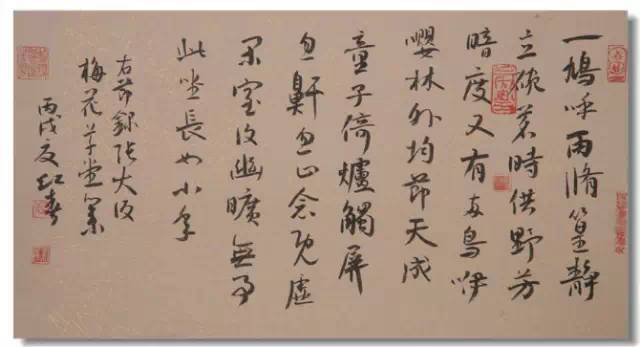 一鳩呼雨脩篁靜
立碗茗時供野芳
暗度又有兩鳥咿
嚶林外均節天成
童子倚爐觸屏
忽鼾忽止念既虛
閑室復幽曠無事
此坐長如小年
右節錄張大復
梅花草堂筆
丙戌夏紅春